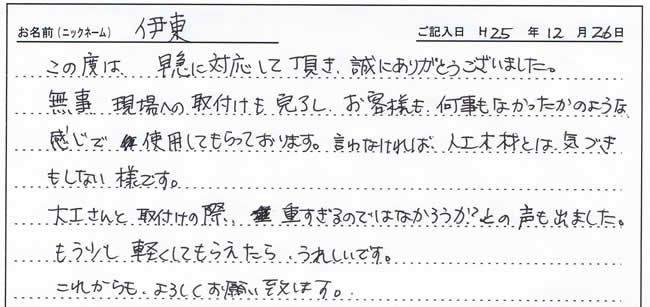 お名前(ニックネーム) 伊東 ご記入日 H25 年 12 月 26日
この度は、早急に対応して頂き、誠にありがとうございました。
無事 現場への取付けも完了し、お客様も何事もなかったかのような
感じで使用してもらっております。言わなければ、人工木材とは気づき
もしない様です。
大工さんと取付けの際、重すぎるのではなかろうか?との声も出ました。
もう少し軽くしてもらえたら、うれしいです。
これからも、よろしくお願い致します。